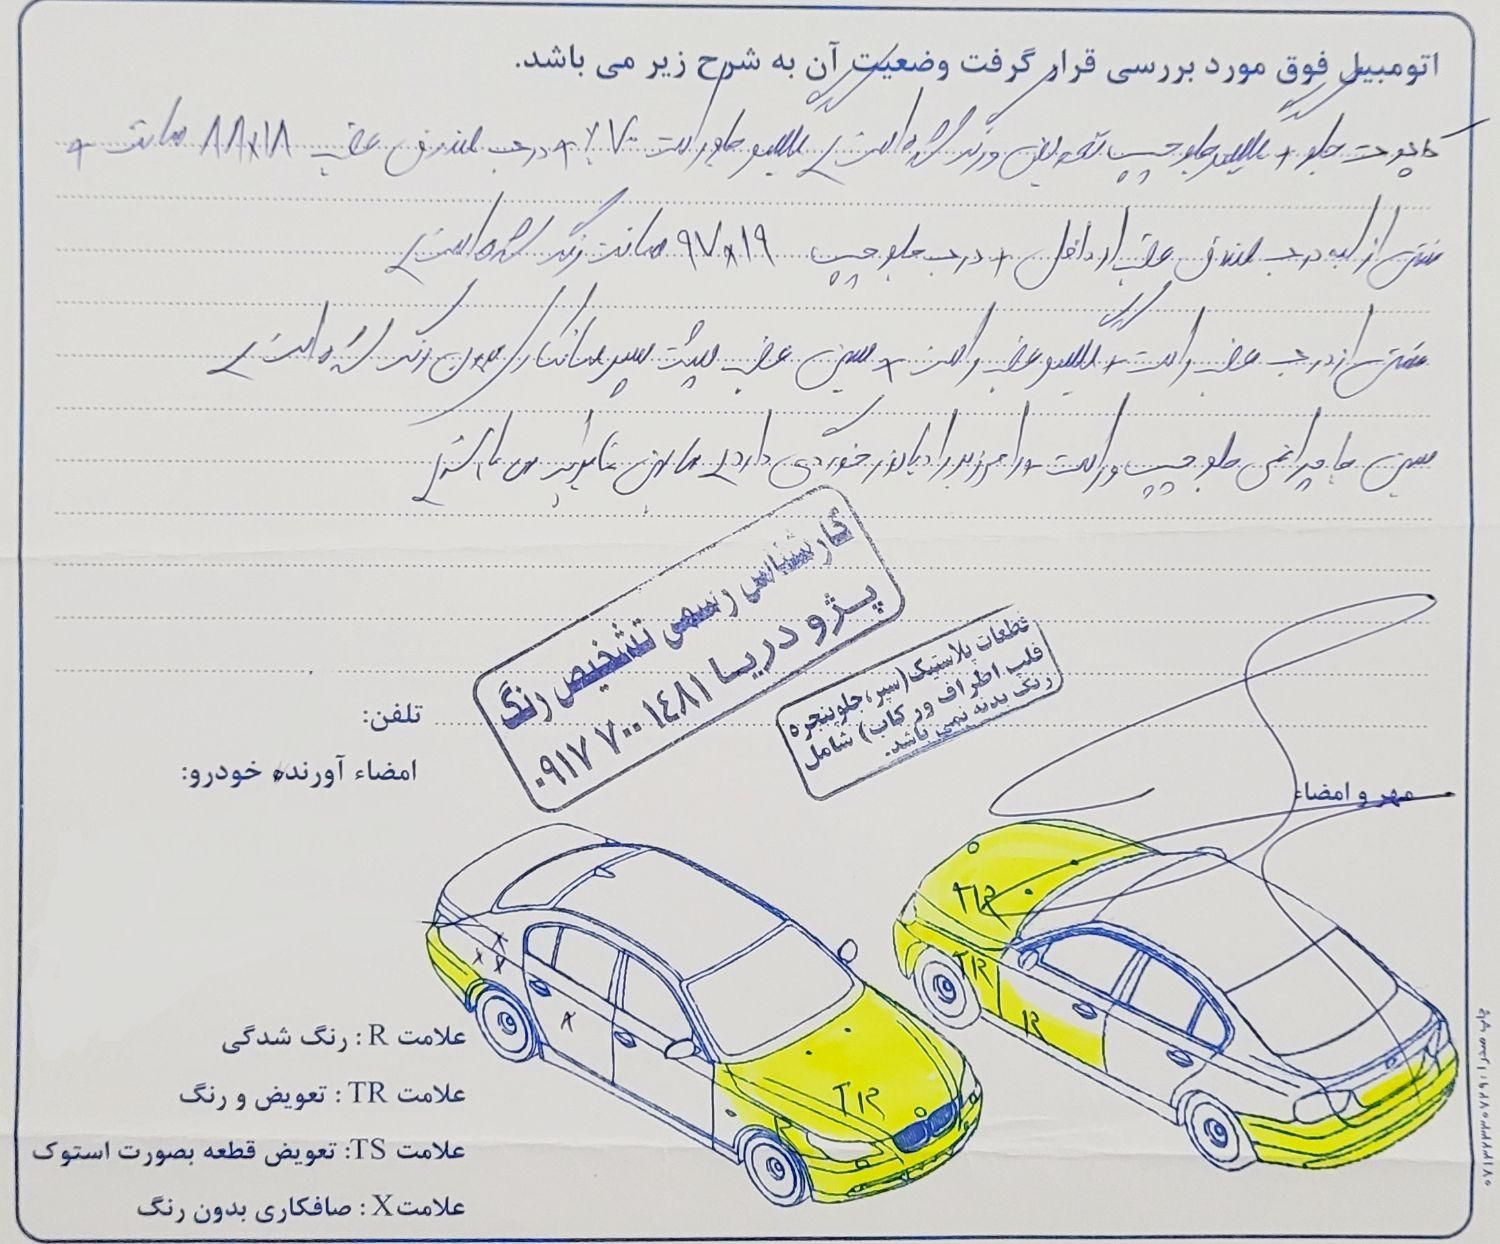 اتومبیل فوق مورد بررسی قرار گرفت وضعیت آن به شرح زیر می باشد.
کاپوت جلو + گلگیر جلو چپ تعویض و رنگ شده است / گلگیر جلو راست ۷۰٪ + درب صندوق عقب ۱۸×۸۸ سانت +
قسمتی از لبه درب صندوق عقب از داخل + درب جلو چپ ۱۹×۹۷ سانت رنگ شده است /
قسمتی از درب عقب راست + گلگیر عقب راست + سینی عقب پشت سپر صافکاری بدون رنگ شده است /
سینی جا چراغی جلو چپ و راست + رام زیر رادیاتور خوردگی دارد /
کارشناس رسمی تشخیص رنگ
پژو دریا
۰۹۱۷ ۷۰۰ ۱٤۸۱
قطعات پلاستیک (سپر، جلوپنجره
قلب اطراف و رکاب) شامل
رنگ بدنه نمی باشد.
تلفن:
امضاء آورنده خودرو:
مهر و امضاء
TR
TR
R
TR
X
X X
X
علامت R : رنگ شدگی
علامت TR : تعویض و رنگ
علامت TS: تعویض قطعه بصورت استوک
علامت X : صافکاری بدون رنگ
چاپ صدرا: ۰۷۱۳۲۳۳۰۷۲۹